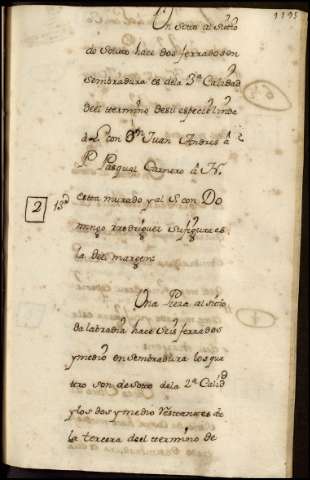 1195
Un Souto al sittio
do Souto hace dos ferrados en
Sembradura es dela 3ª Calidad
de el termino de su especie linde
a L. con Dn Juan Andres â
P. Pasqual Carnero â N.
2 13ª esta murado y al S. con Do
mingo Rodriguez Su figura es
la del margen
Una Pieza al sittio
da labradia hace Seis ferrados
y medio en Sembradura los qua
ttro son de Soto de la 2ª Calidd
y los dos y medio restantes de
la tercera de el termino de